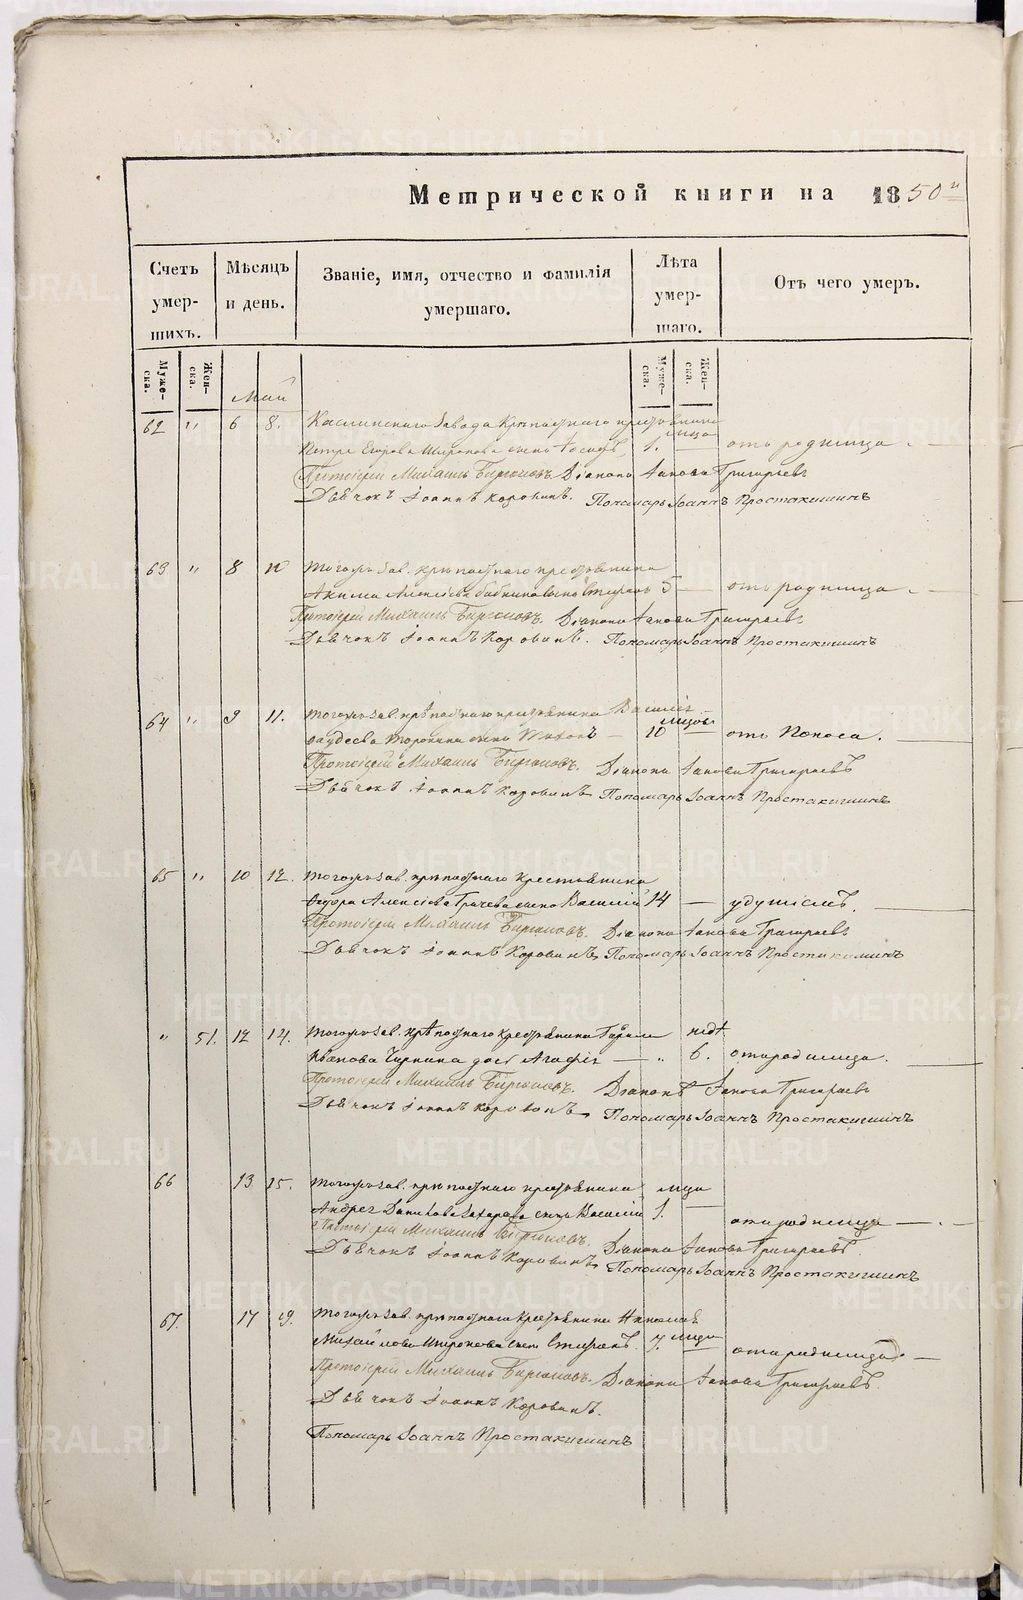 Метрической книги на 1850й
Счетъ умер- шихъ.
Мѣсяцъ и день.
Званіе, имя, отчество и фамилія умершаго.
Лѣта умер- шаго.
Отъ чего умеръ.
Муже- ска.
Жен- ска.
Муже- ска.
Жен- ска.
Май
62 " 6 8. Каслинскаго завода крѣпостнаго крестьянина мца
Петра Егорова Широкова сынъ 1. отъ родимца.
Протоіерей Михаилъ Діаконъ Іаковъ Григорьевъ
Дьячокъ Іоаннъ Коровинъ. Пономарь Іоаннъ Простакишинъ
63 " 8 10 тогожъ зав. крѣпостнаго крестьянина
Алексѣева сынъ Стефанъ 5 — отъ родимца.
Протоіерей Михаилъ Діаконъ Іаковъ Григорьевъ
Дьячокъ Іоаннъ Коровинъ. Пономарь Іоаннъ Простакишинъ
64 " 9 11. тогожъ зав. крѣпостнаго крестьянина Василія
мцовъ
сынъ — 10 — отъ Поноса.
Протоіерей Михаилъ Діаконъ Іаковъ Григорьевъ
Дьячокъ Іоаннъ Коровинъ Пономарь Іоаннъ Простакишинъ
65 " 10 12. тогожъ зав. крѣпостнаго крестьянина
Ѳедора Алексѣева Грачева сынъ Василій 14 —
Протоіерей Михаилъ Діаконъ Іаковъ Григорьевъ
Дьячокъ Іоаннъ Коровинъ Пономарь Іоаннъ Простакишинъ
" 51. 12 14. тогожъ зав. крѣпостнаго крестьянина нед.
Иванова дочь — " 6. отъ родимца.
Протоіерей Михаилъ Діаконъ Іаковъ Григорьевъ
Дьячокъ Іоаннъ Коровинъ Пономарь Іоаннъ Простакишинъ
66 13 15. тогожъ зав. крѣпостнаго крестьянина мца
Андрея Данилова Захарова сынъ Василій 1. — отъ родимца
Протоіерей Михаилъ Діаконъ Іаковъ Григорьевъ
Дьячокъ Іоаннъ Коровинъ Пономарь Іоаннъ Простакишинъ
67. 17 19. тогожъ зав. крѣпостнаго крестьянина Николая
Михайлова Широкова сынъ Стефанъ. 7. мца отъ родимца
Протоіерей Михаилъ Діаконъ Іаковъ Григорьевъ
Дьячокъ Іоаннъ Коровинъ.
Пономарь Іоаннъ Простакишинъ
METRIKI.GASO-URAL.RU